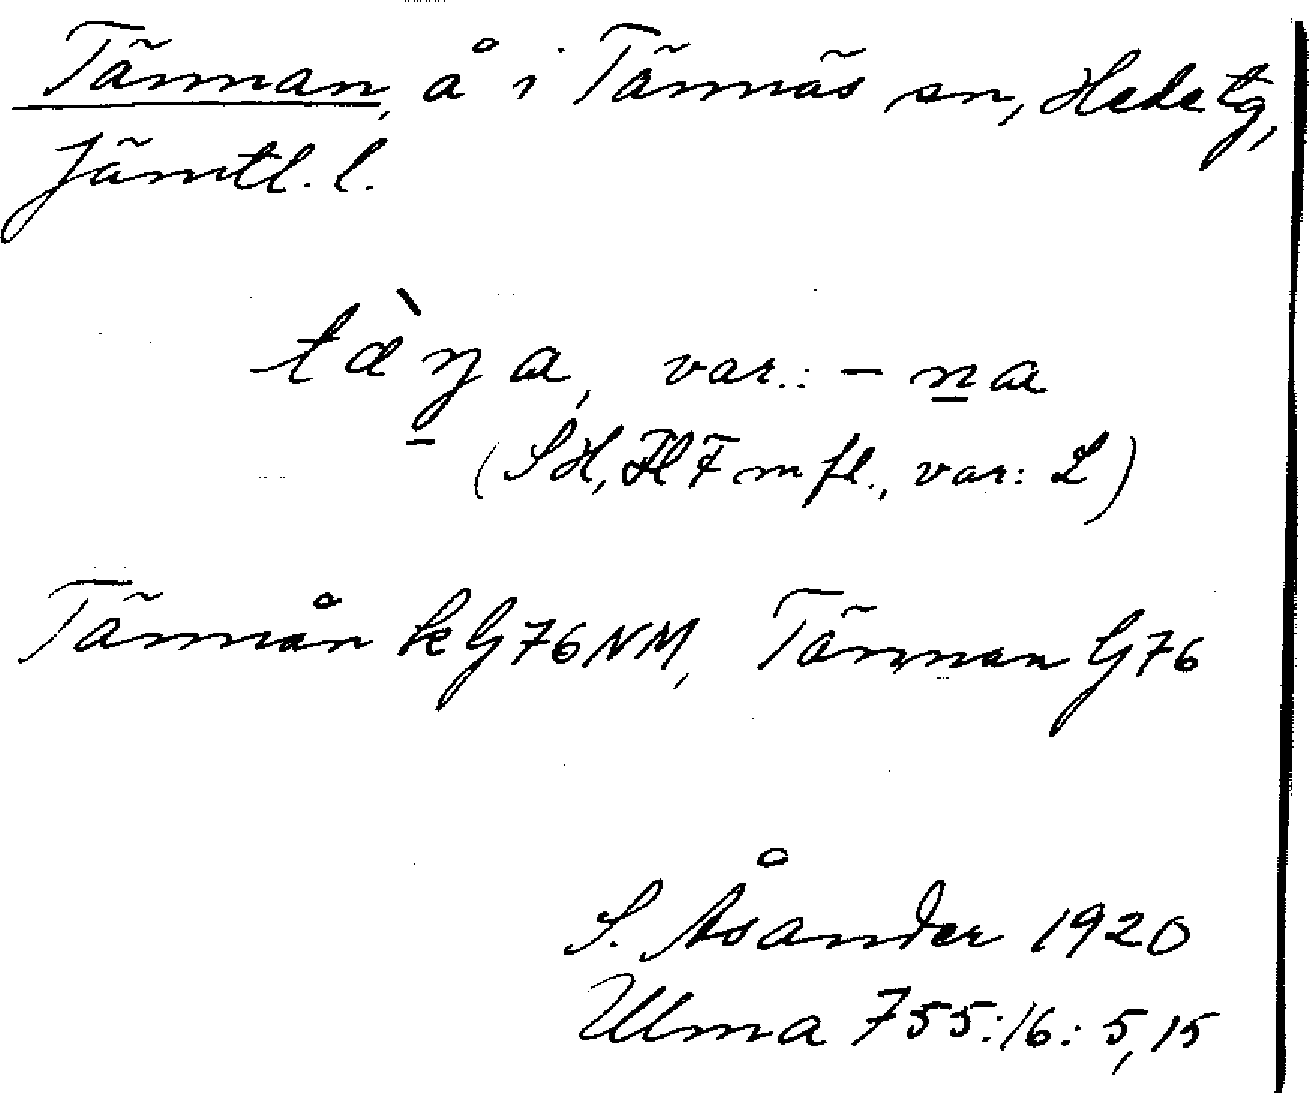 Tännan, å i Tännäs sn, Hede tg,
Jämtl. l.
tæ̀ŋa, var.: -na
(SH, HF m fl., var: L)
Tännån kG76NM, Tännan G76
S. Åsander 1920
Ulma 755:16: 5,15